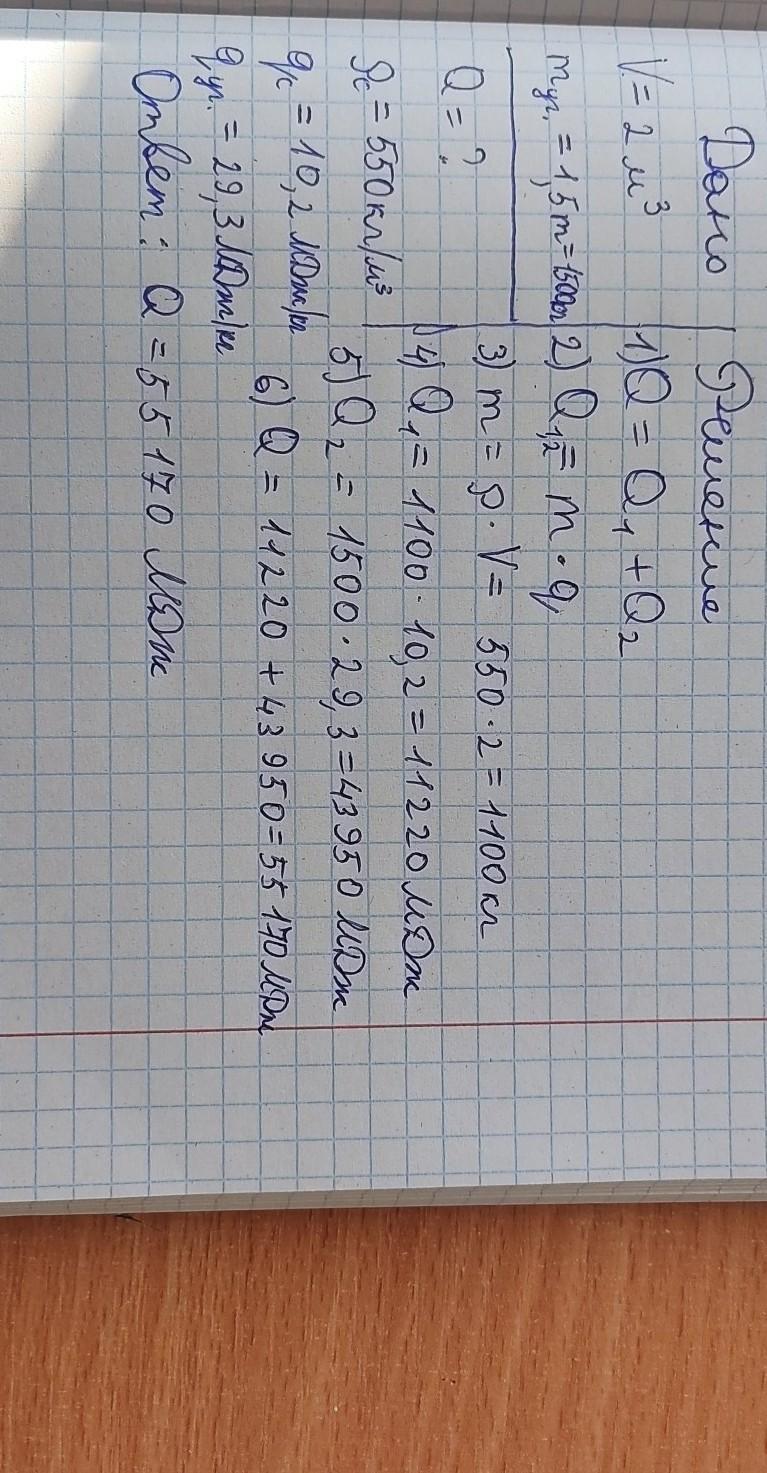 Дано
V = 2 м³
m уг. = 1,5 т = 1500кг
Q = ?
ρс = 550 кг/м³
qс = 10,2 МДж/кг
q уг. = 29,3 МДж/кг
Решение
1) Q = Q₁ + Q₂
2) Q₁,₂ = m · q
3) m = ρ · V = 550 · 2 = 1100 кг
4) Q₁ = 1100 · 10,2 = 11220 МДж
5) Q₂ = 1500 · 29,3 = 43950 МДж
6) Q = 11220 + 43950 = 55170 МДж
Ответ: Q = 55170 МДж